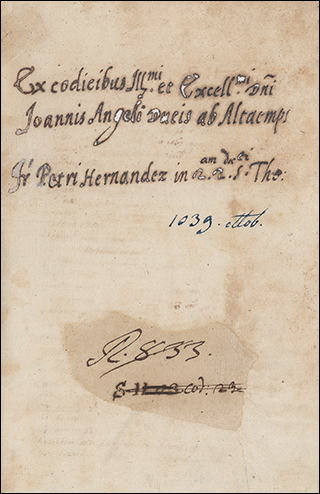 Ex codicibus Ill.mi et Excell.mi Dñi
Joannis Angeli Ducis ab Altaemps
Fr Petri Hernandez in
S. Tho:
1039. ottob.
R. 833.
cod. 123